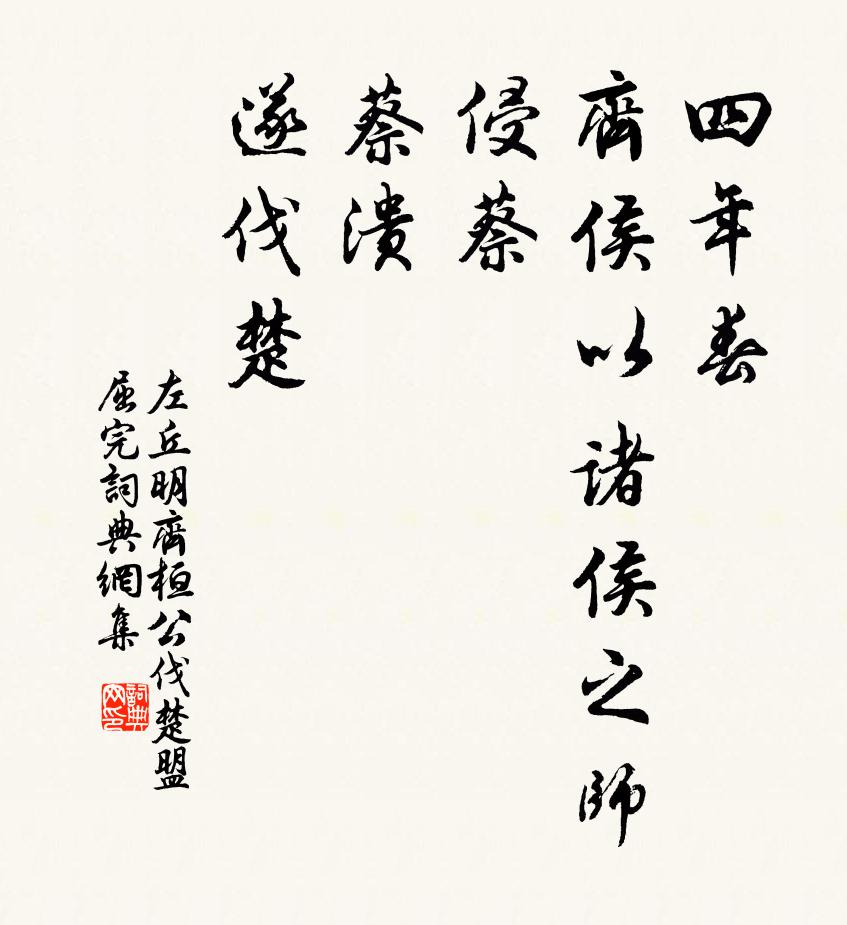 四年春
齊侯以諸侯之師
侵蔡
蔡潰
遂伐楚
左丘明齊桓公伐楚盟
屈完詞典網集
詞典
网印